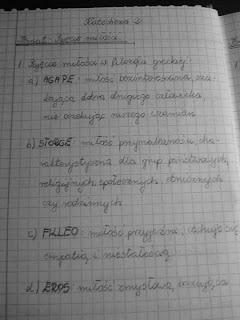 Katecheza 2
Temat: Pojęcie miłości.
1. Pojęcie miłości w filozofii greckiej:
a) AGAPE: miłość bezinteresowna, szu-
kająca dobra drugiego człowieka
nie oczekując niczego w zamian
b) STORGE: miłość przynależności cha-
rakterystyczna dla grup państwowych,
religijnych, społecznych, etnicznych
czy rodzinnych
c) FILEO: miłość przyjacielska, cechuje się
empatią i niestałością
d) EROS: miłość zmysłowa,